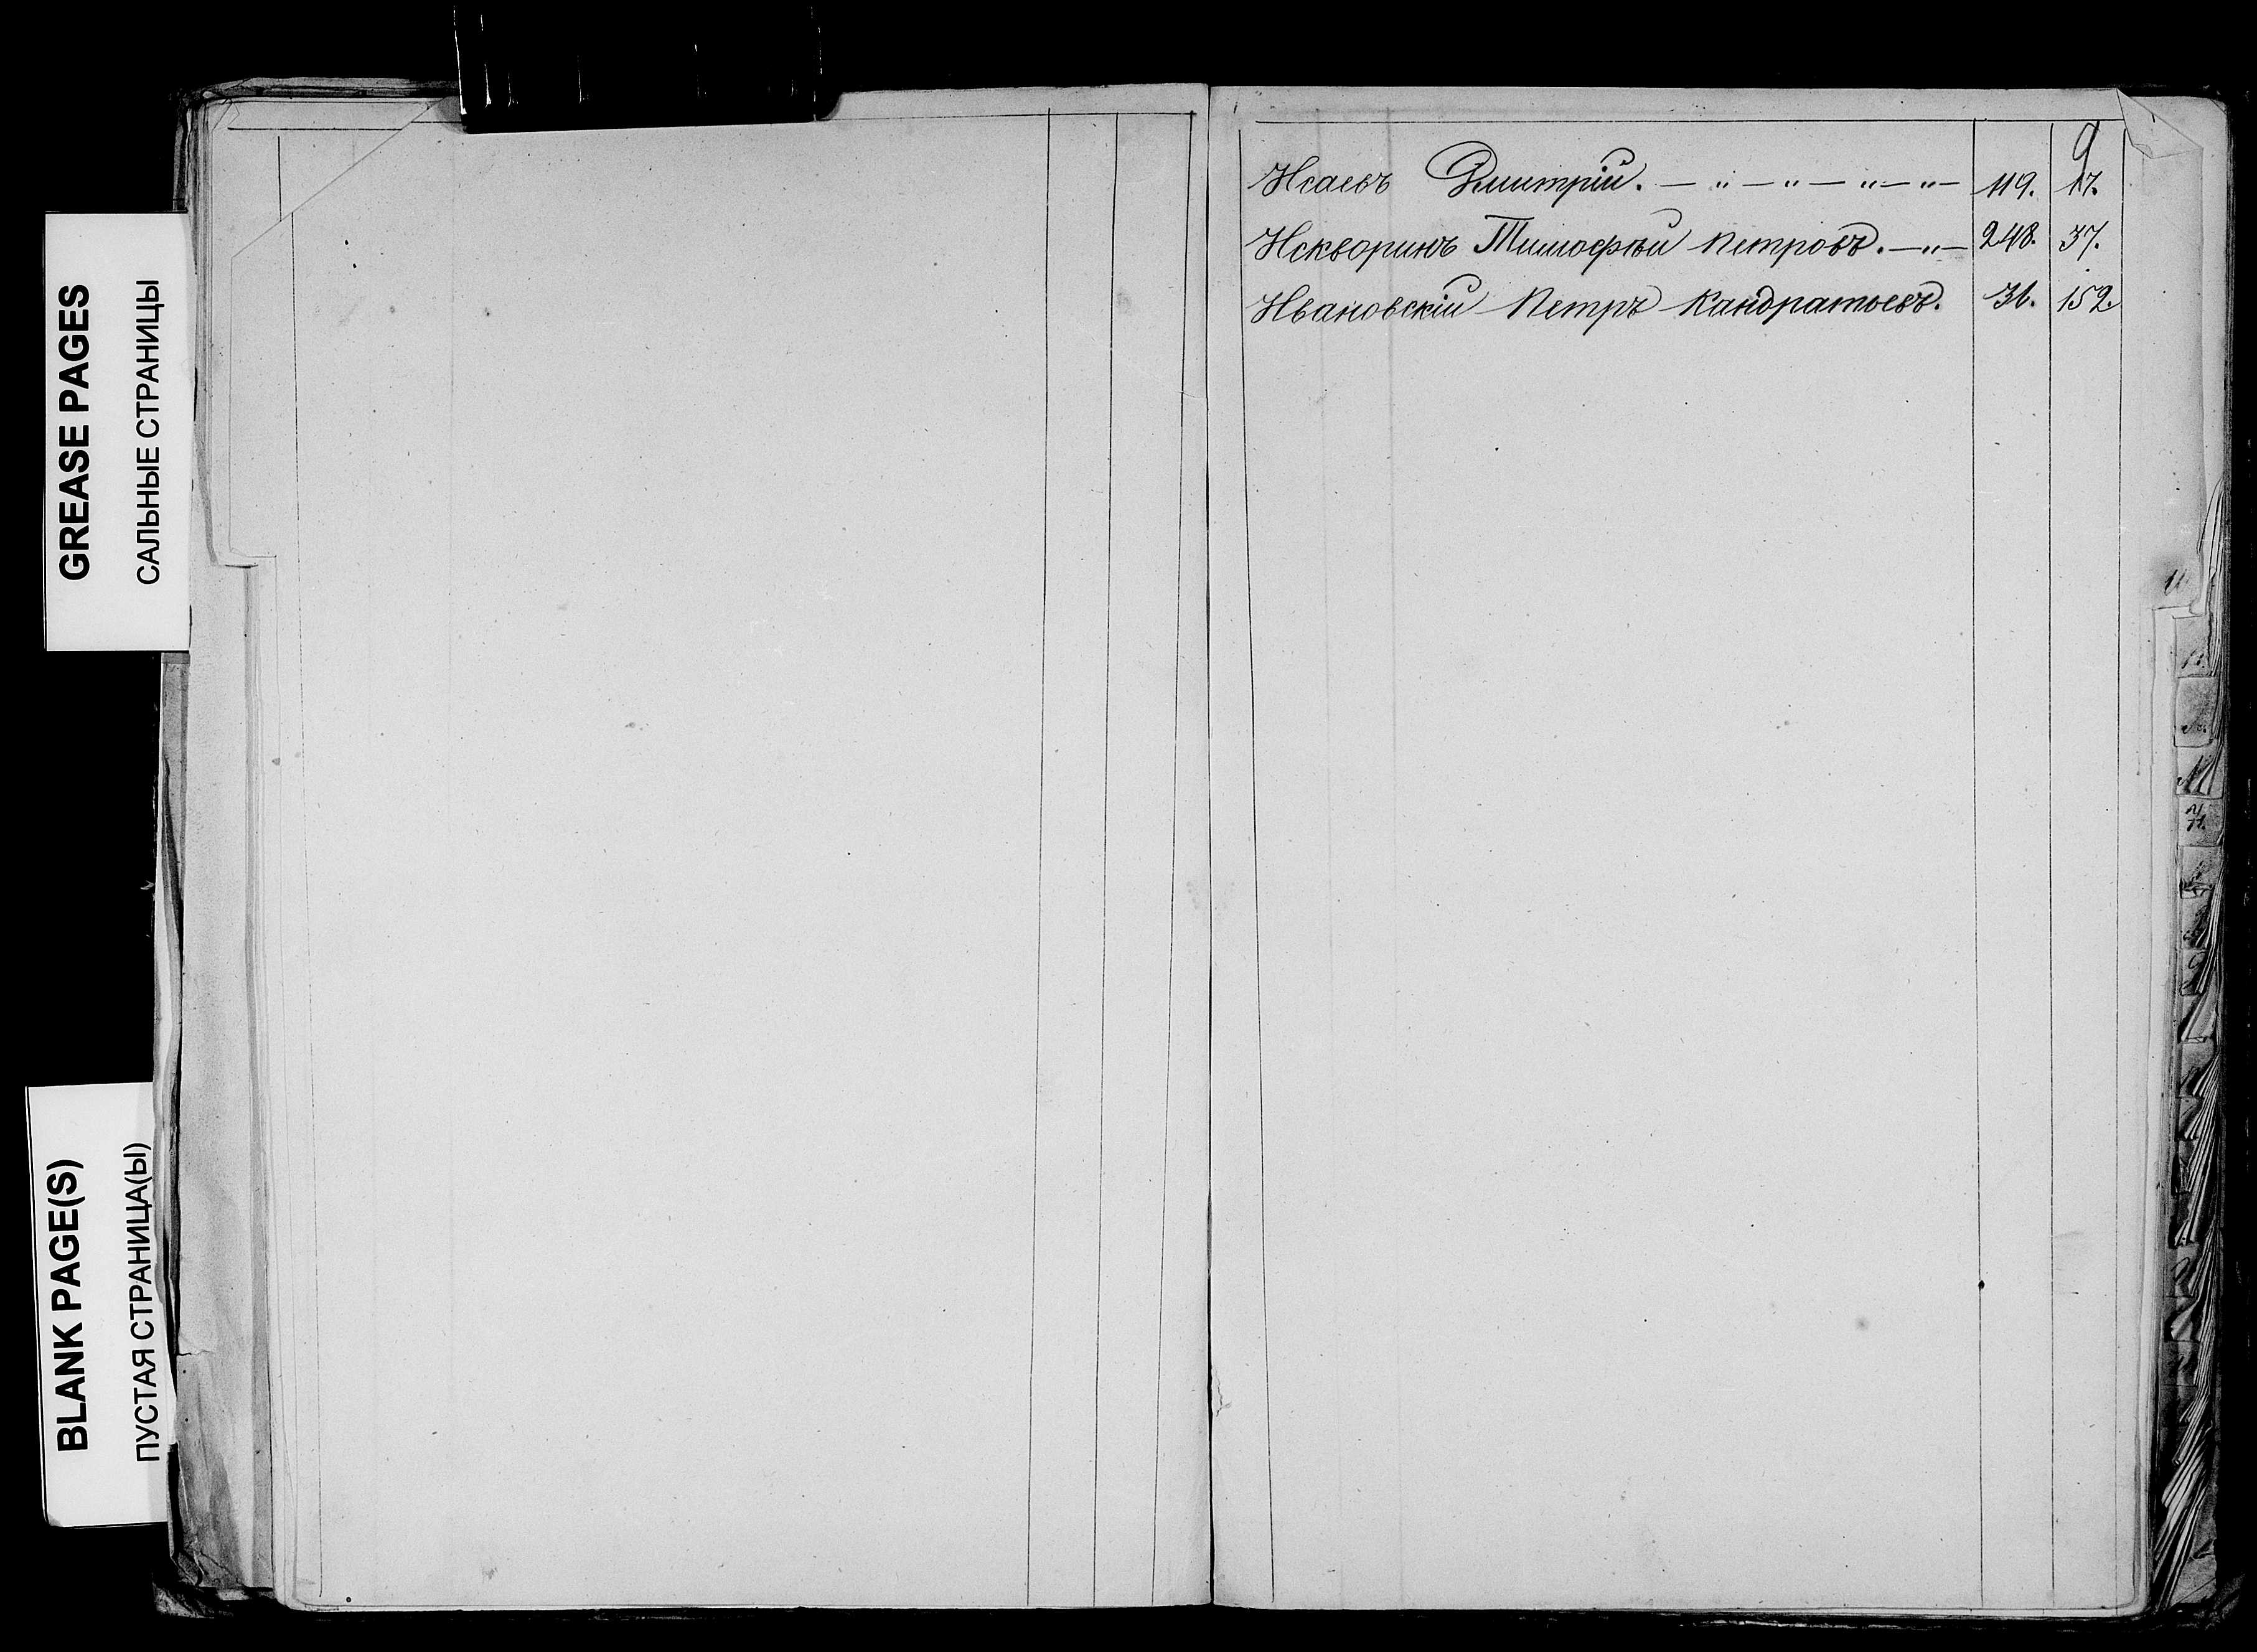 GREASE PAGES
САЛЬНЫЕ СТРАНИЦЫ
BLANK PAGE(S)
ПУСТАЯ СТРАНИЦА(Ы)
9
Исаевъ Дмитрій. — „ — „ — „ — „ — 119. 17.
Искворинъ Тимофѣй Петровъ. — „ — 248. 37.
Ивановскій Петръ Кандратьевъ. 31. 152.
М